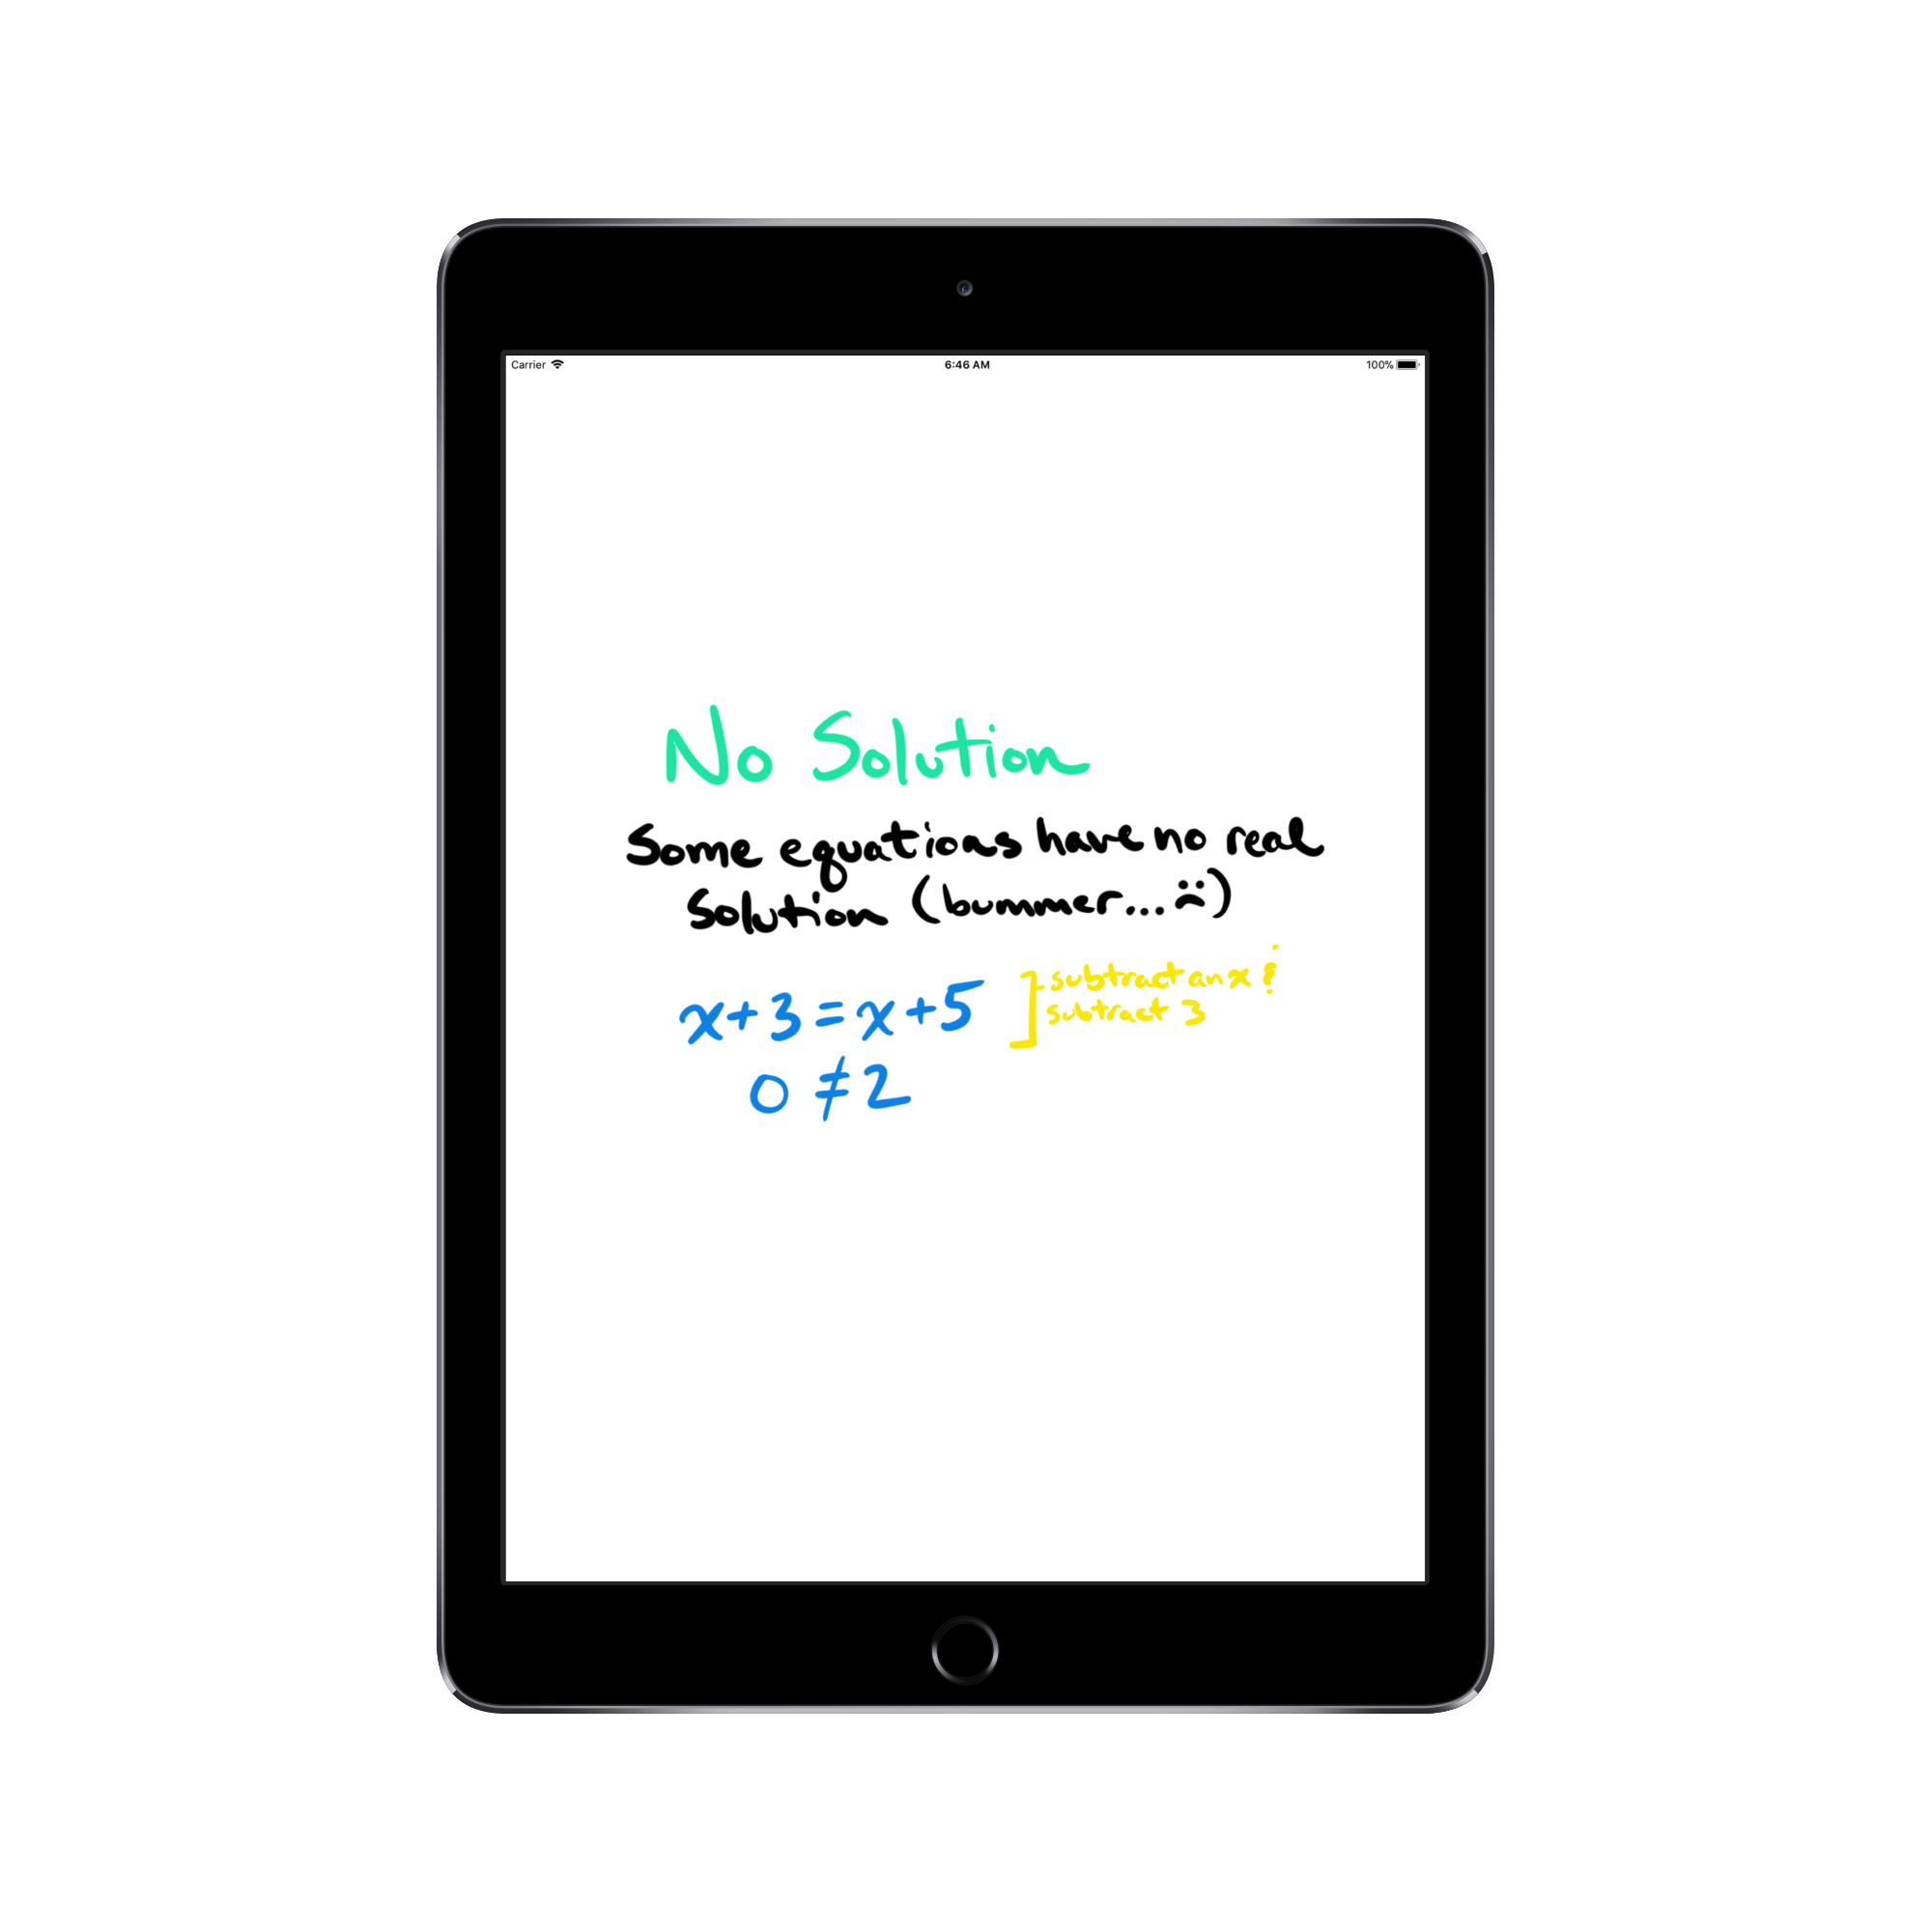 Carrier 6:46 AM 100%
No Solution
Some equations have no real
Solution (bummer...☹)
x+3=x+5 ] subtract an x &
subtract 3
0 ≠ 2